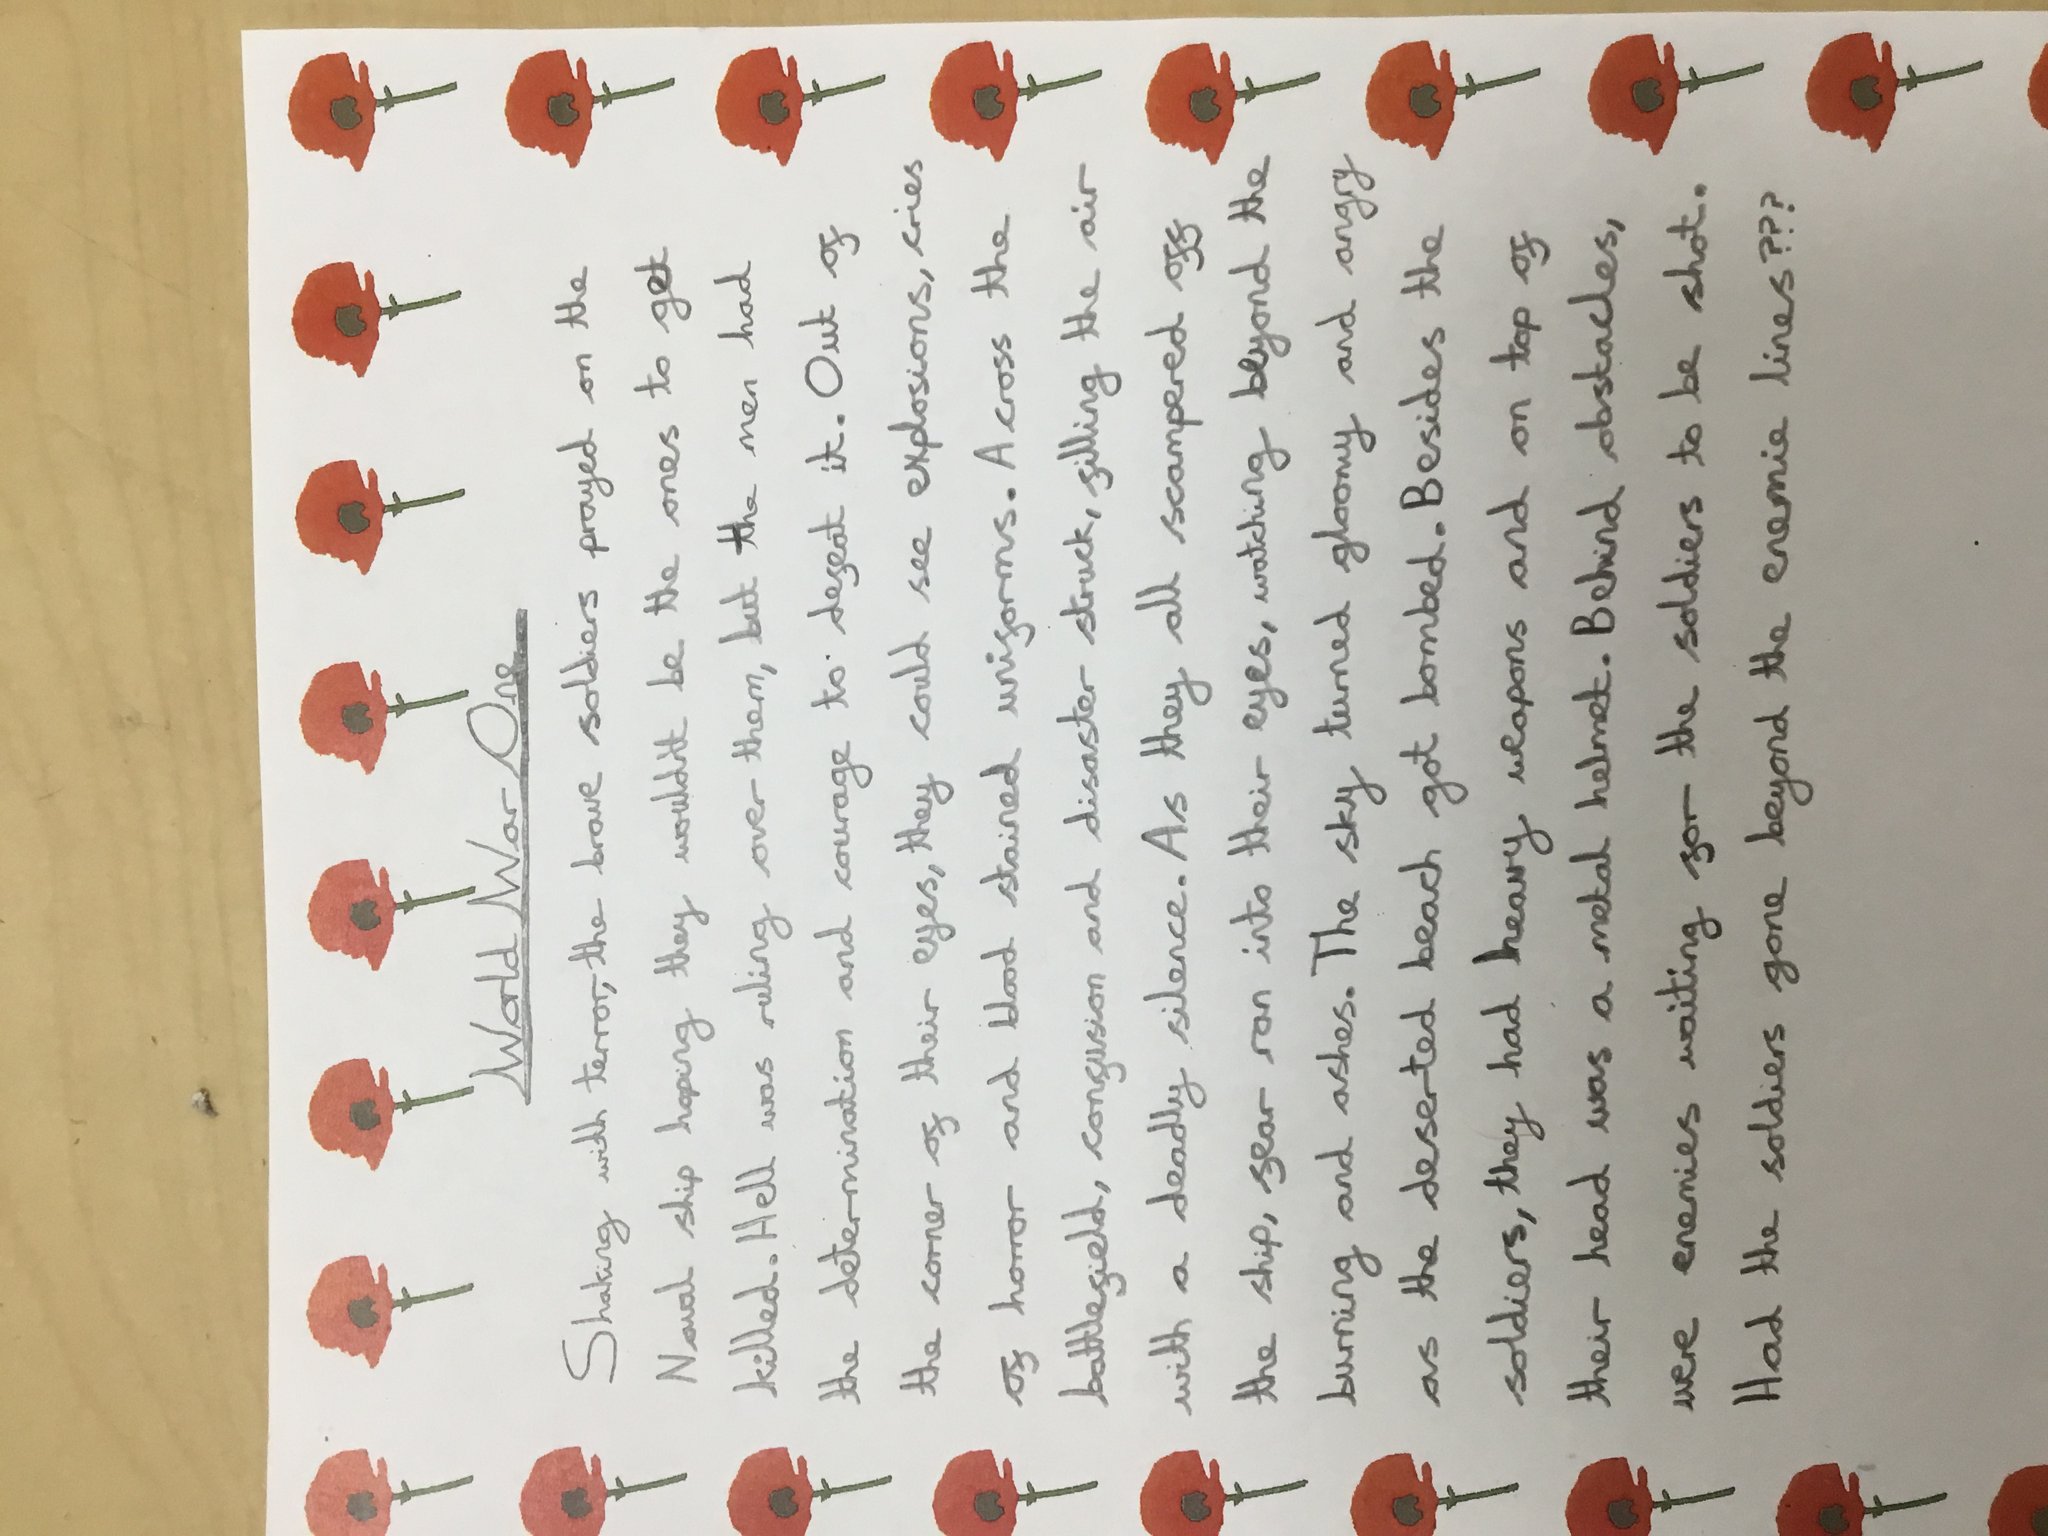 World War One
Shaking with terror, the brave soldiers prayed on the
Naval ship hoping they wouldn't be the ones to get
killed. Hell was ruling over them, but the men had
the determination and courage to defeat it. Out of
the corner of their eyes, they could see explosions, cries
of horror and blood stained uniforms. Across the
battlefield, confusion and disaster struck, filling the air
with a deadly silence. As they all scampered off
the ship, fear ran into their eyes, watching beyond the
burning and ashes. The sky turned gloomy and angry
as the deserted beach got bombed. Besides the
soldiers, they had heavy weapons and on top of
their head was a metal helmet. Behind obstacles,
were enemies waiting for the soldiers to be shot.
Had the soldiers gone beyond the enemie lines???